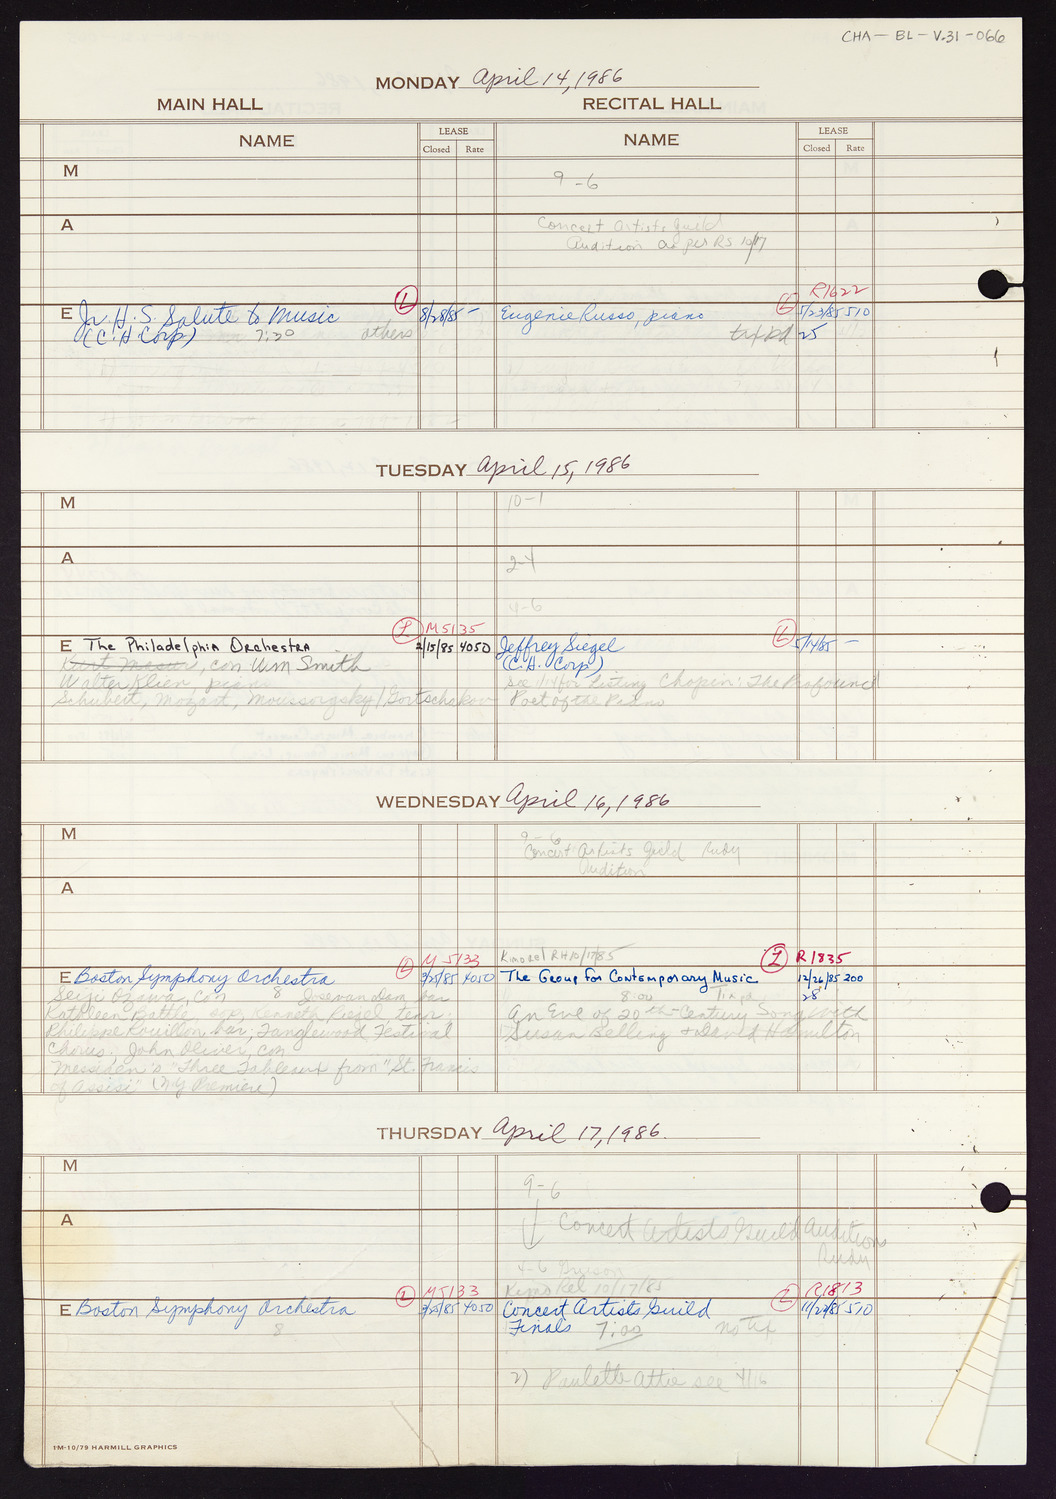 CHA-BL-V.31-066
MONDAY April 14, 1986
MAIN HALL RECITAL HALL
NAME LEASE Closed Rate NAME LEASE Closed Rate
M
9-6
A
Concert Artists Guild
Audition as per RS 10/17
R1622
E Jr. H. S. Salute to Music L 8/28/85 - Eugenie Russo, piano L 5/23/85 510
(C. H. Corp) 7:30 others tax pd 25
TUESDAY April 15, 1986
M 10-1
A 2-4
4-6
L M5135
E The Philadelphia Orchestra 2/15/85 4050 Jeffrey Siegel L 5/14/85 -
Kurt Masur, con Wm Smith (C. H. Corp)
Walter Klien, piano See 1/14 for listing Chopin: The Profound
Schubert, Mozart, Moussorgsky/Gortschakov Poet of the Piano
WEDNESDAY April 16, 1986
M 9-6
Concert Artists Guild Rudy
Audition
A
L M 5133 Kimo Rel RH 10/17/85 L R1835
E Boston Symphony Orchestra 3/25/85 4050 The Group for Contemporary Music 12/26/85 200
Seiji Ozawa, con 8 Jose van Dam bar 8:00 28
Kathleen Battle, sop, Kenneth Riegel, tenor An Eve of 20th-Century Song With
Philippe Rouillon bar; Tanglewood Festival Susan Belling & David Hamilton
Chorus, John Oliver, con
Messiaen's "Three Tableaux from "St. Francis
of Assisi" (NY Premiere)
THURSDAY April 17, 1986
M
9-6
A
Concert Artists Guild Auditions
Rudy
4-6
L M5133 Kimo Rel 10/17/85 L R1813
E Boston Symphony Orchestra 3/25/85 4050 Concert Artists Guild 510
8 Finals 7:00 no tax
2) Paulette Attie see 4/16
1M-10/79 HARMILL GRAPHICS